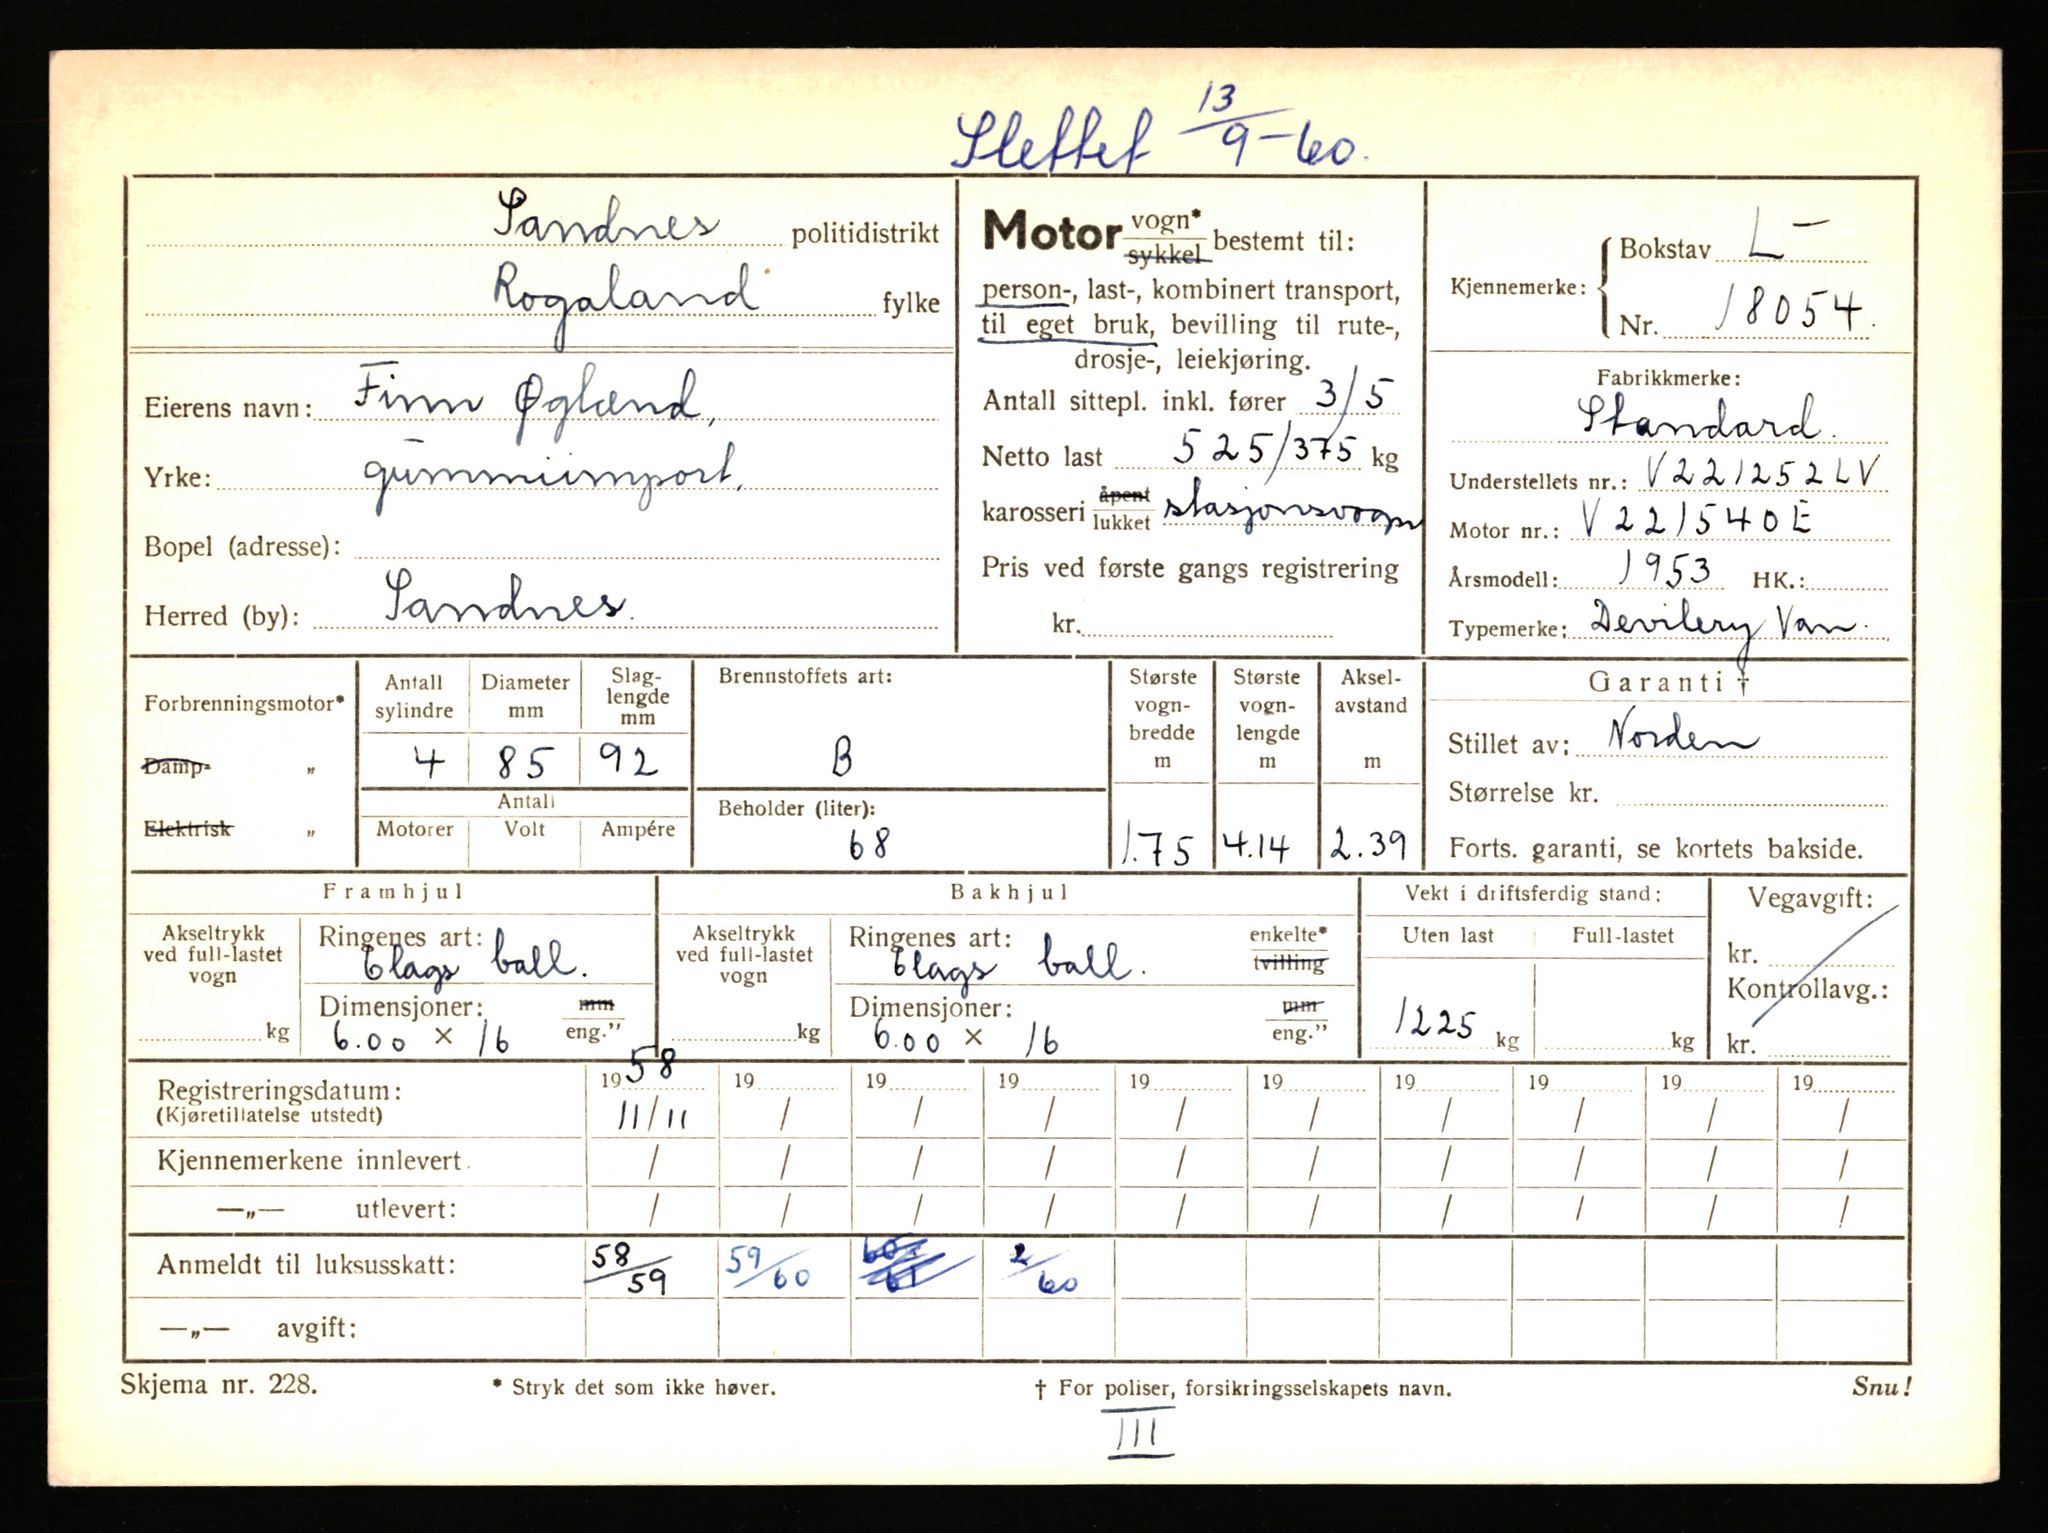 Slettet 13/9-60.
Sandnes politidistrikt
Rogaland fylke
Eierens navn: Finn Øglænd,
Yrke: gummiimport,
Bopel (adresse):
Herred (by): Sandnes.
Motor vogn* sykkel bestemt til:
person-, last-, kombinert transport,
til eget bruk, bevilling til rute-,
drosje-, leiekjøring.
Antall sittepl. inkl. fører 3/5
Netto last 525/375 kg
karosseri åpent lukket stasjonsvogn
Pris ved første gangs registrering
kr.
Kjennemerke: Bokstav L-
Nr. 18054.
Fabrikkmerke:
Standard.
Understellets nr.: V221252LV
Motor nr.: V221540E
Årsmodell: 1953 HK.:
Typemerke: Devilery Van.
Forbrenningsmotor*
Damp- „
Elektrisk „
Antall sylindre
4
Diameter mm
85
Slag-lengde mm
92
Antall
Motorer Volt Ampére
Brennstoffets art:
B
Beholder (liter):
68
Største vogn-bredde m
1.75
Største vogn-lengde m
4.14
Aksel-avstand m
2.39
Garanti †
Stillet av: Norden
Størrelse kr.
Forts. garanti, se kortets bakside.
Framhjul
Akseltrykk ved full-lastet vogn
kg
Ringenes art:
Elags ball.
Dimensjoner: mm
6.00 × 16 eng.”
Bakhjul
Akseltrykk ved full-lastet vogn
kg
Ringenes art: enkelte*
Elags ball. tvilling
Dimensjoner: mm
6.00 × 16 eng.”
Vekt i driftsferdig stand:
Uten last Full-lastet
1225 kg kg
Vegavgift:
kr.
Kontrollavg.:
kr.
Registreringsdatum: 1958 19 19 19 19 19 19 19 19 19
(Kjøretillatelse utstedt) 11/11 / / / / / / / / /
Kjennemerkene innlevert. / / / / / / / / / /
—„— utlevert: / / / / / / / / / /
Anmeldt til luksusskatt: 58/59 59/60 60/61 2/60
—„— avgift:
Skjema nr. 228. * Stryk det som ikke høver. † For poliser, forsikringsselskapets navn. Snu!
III